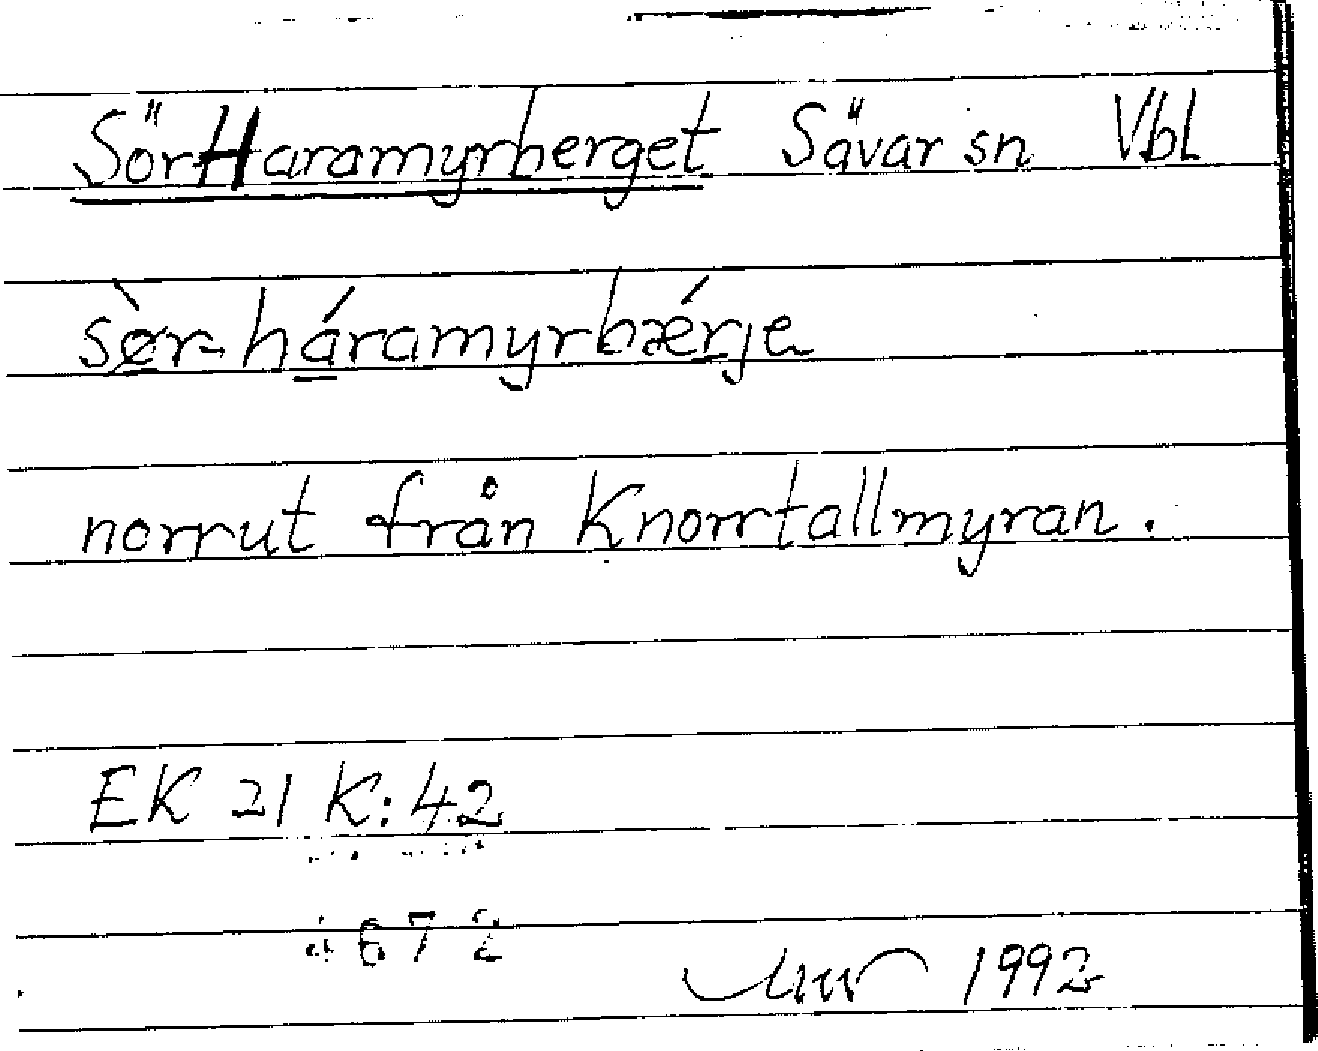 SörHaramyrberget Sävar sn Vbl
sø̀r-háramyrbǽrje
norrut från Knorrtallmyran.
EK 21 K:42
672
1992